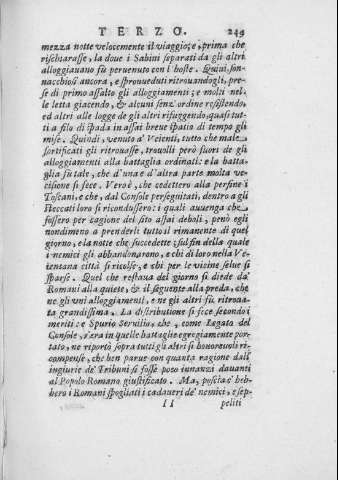 TERZO. 249
mezza notte velocemente il viaggio; e, prima che
rischiarasse, la doue i Sabini separati da gli altri
alloggiauano fù peruenuto con l'hoste. Quiui, son-
nacchiosi ancora, e sproueduti ritrouandogli, pre-
se di primo assalto gli alloggiamenti; e molti nel-
le letta giacendo, & alcuni senz'ordine resistendo,
ed altri alle logge de gli altri rifuggendo, quasi tut-
ti a filo di spada in assai breue spatio di tempo gli
mise. Quindi, venuto a' Veienti, tutto che male
fortificati gli ritrouasse, trouolli però fuori de gli
alloggiamenti alla battaglia ordinati: e la batta-
glia fù tale, che d'una e d'altra parte molta vc-
cisione si fece. Vero è, che cedettero alla perfine i
Toscani, e che, dal Console perseguitati, dentro a gli
steccati loro si ricondussero: i quali auuenga che
fossero per cagione del sito assai deboli, però egli
nondimeno a prenderli tutto il rimanente di quel
giorno, e la notte che succedette; sul fin della quale
i nemici gli abbandonarono, e chi di loro nella Ve-
ientana città si ricolse, e chi per le vicine selue si
sparse. Quel che restaua del giorno si diede da'
Romani alla quiete, & il seguente alla preda, che
ne gli vni alloggiamenti, e ne gli altri fù ritroua-
ta grandissima. La distributione si fece secondo i
meriti: e Spurio Seruilio, che, come Legato del
Console, s'era in quelle battaglie egregiamente por-
tato, ne riportò sopra tutti gli altri sì honoreuoli ri-
compense, che ben parue con quanta ragione dall'
ingiurie de' Tribuni si fosse poco innanzi dauanti
al Popolo Romano giustificato. Ma, poscia c' heb-
bero i Romani spogliati i cadaueri de' nemici, e sep-
II peliti